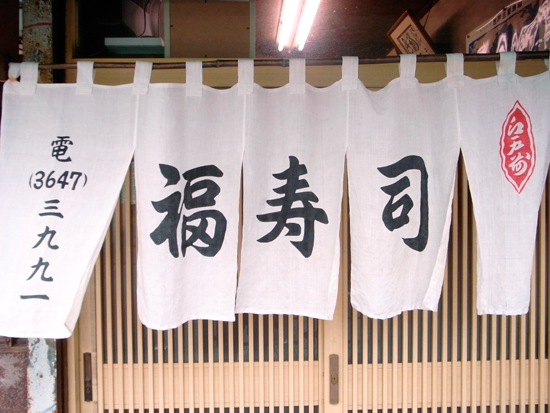 電
(3647)
三九九一
福寿司
江戸前